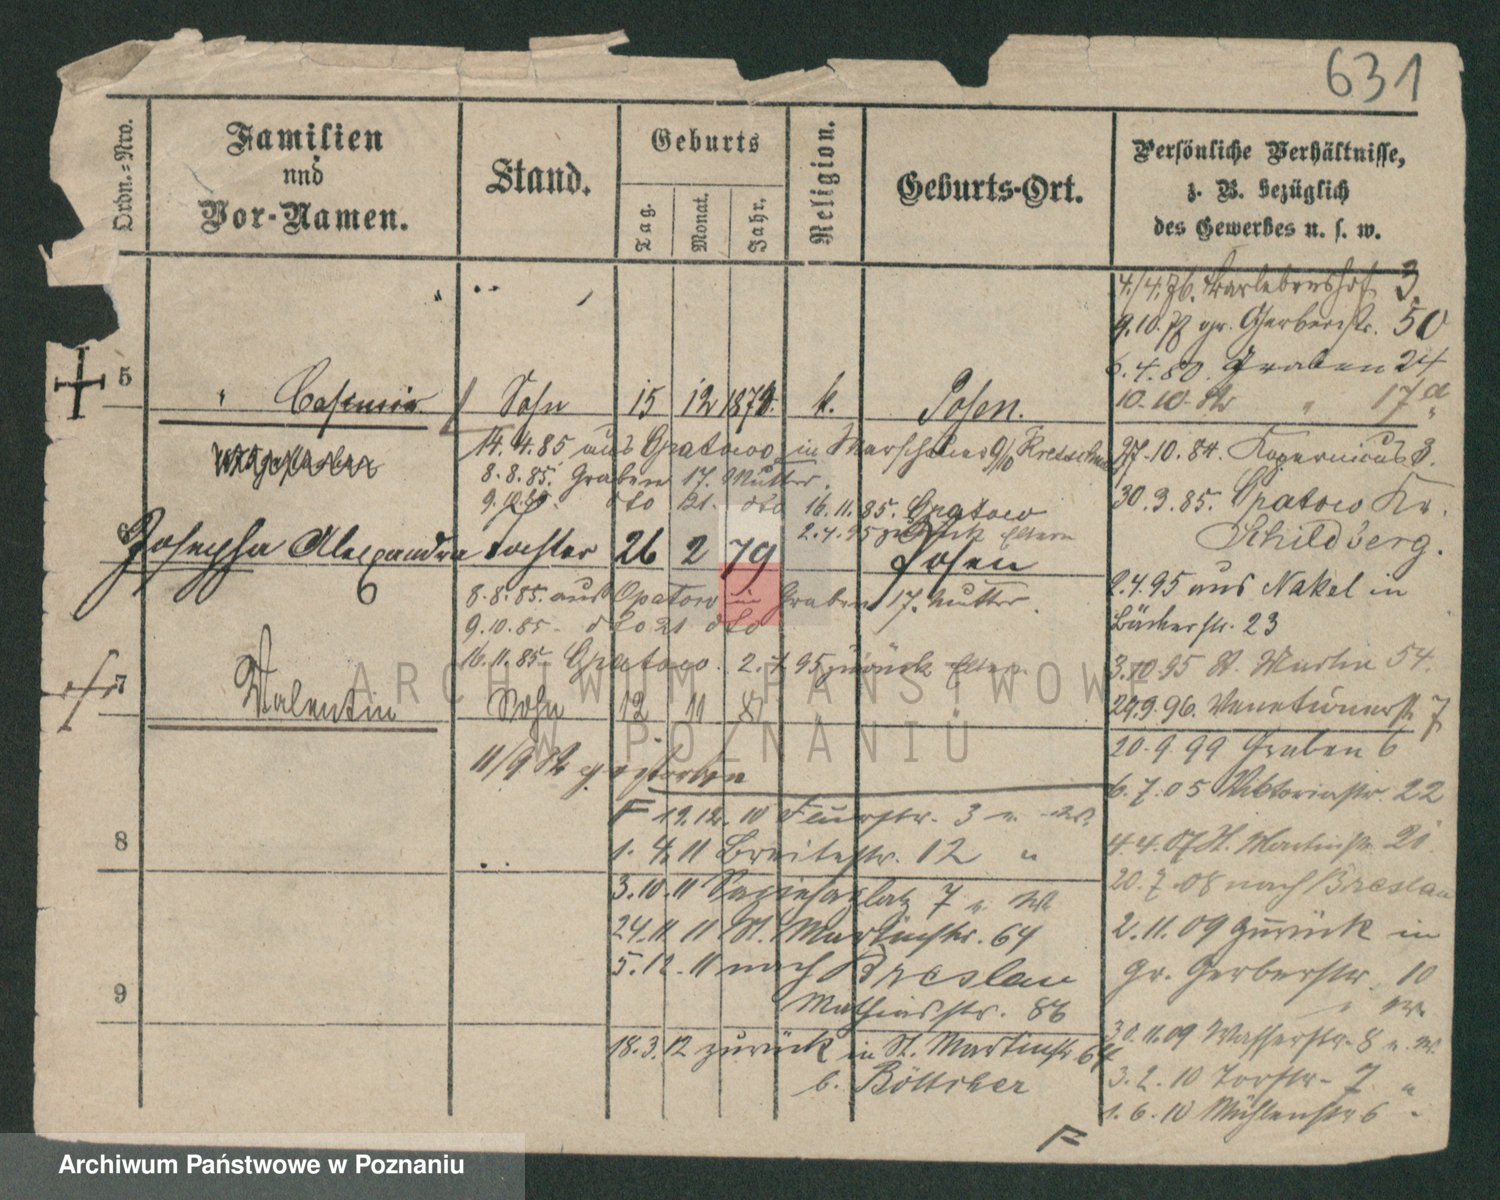 631
Ordn.-Nro.
Familien
und
Vor-Namen.
Stand.
Geburts
Tag.
Monat.
Jahr.
Religion.
Geburts-Ort.
Persönliche Verhältnisse,
z. B. bezüglich
des Gewerbes u. s. w.
3
9.10. gr. Gerberstr. 50
6.4.80. Graben 24
10.10. 17a
5 " Casimir Sohn 15 12 187 k. Posen.
14.4.85 aus Opatowo in
8.8.85. Graben 17. Mutter.
9.10.85. dto 21. dto 16.11.85. Opatowo
2.7.95 zurück Eltern
27.10.84. Kopernicus 3.
30.3.85. Opatow Kr.
Schildberg.
6 Josepha Alexandra Tochter 26 2 79 Posen
6
8.8.85. aus Opatow in Graben 17. Mutter.
9.10.85- dto 21 dto
16.11.85 Opatowo. 2.7.95 zurück Eltern
2.4.95 aus Nakel in
Bäckerstr. 23
3.10.95 St. Martin 54.
29.9.96. Venetianerstr. 7
7 Valentin Sohn 12 11 81
11/9 82 gestorben
20.9.99 Graben 6
6.7.05 Viktoriastr. 22
4.4.07 St. Martinstr. 21
20.7.08 nach Breslau
2.11.09 zurück in
Gr. Gerberstr. 10
30.11.09 Wasserstr. 8
3.2.10 Torstr. 7 "
1.6.10 Mühlenstr 6 "
F 19.12.10 Flurstr. 3
8
1.4.11 Breitestr. 12 "
3.10.11 Sapiehaplatz 7
24.11.11 St. Martinstr. 64
5.12.11 nach Breslau
Mathiasstr. 86
9
18.3.12 zurück in St. Martinstr 64
b. Böttcher
F
ARCHIWUM PAŃSTWOWE
W POZNANIU
Archiwum Państwowe w Poznaniu